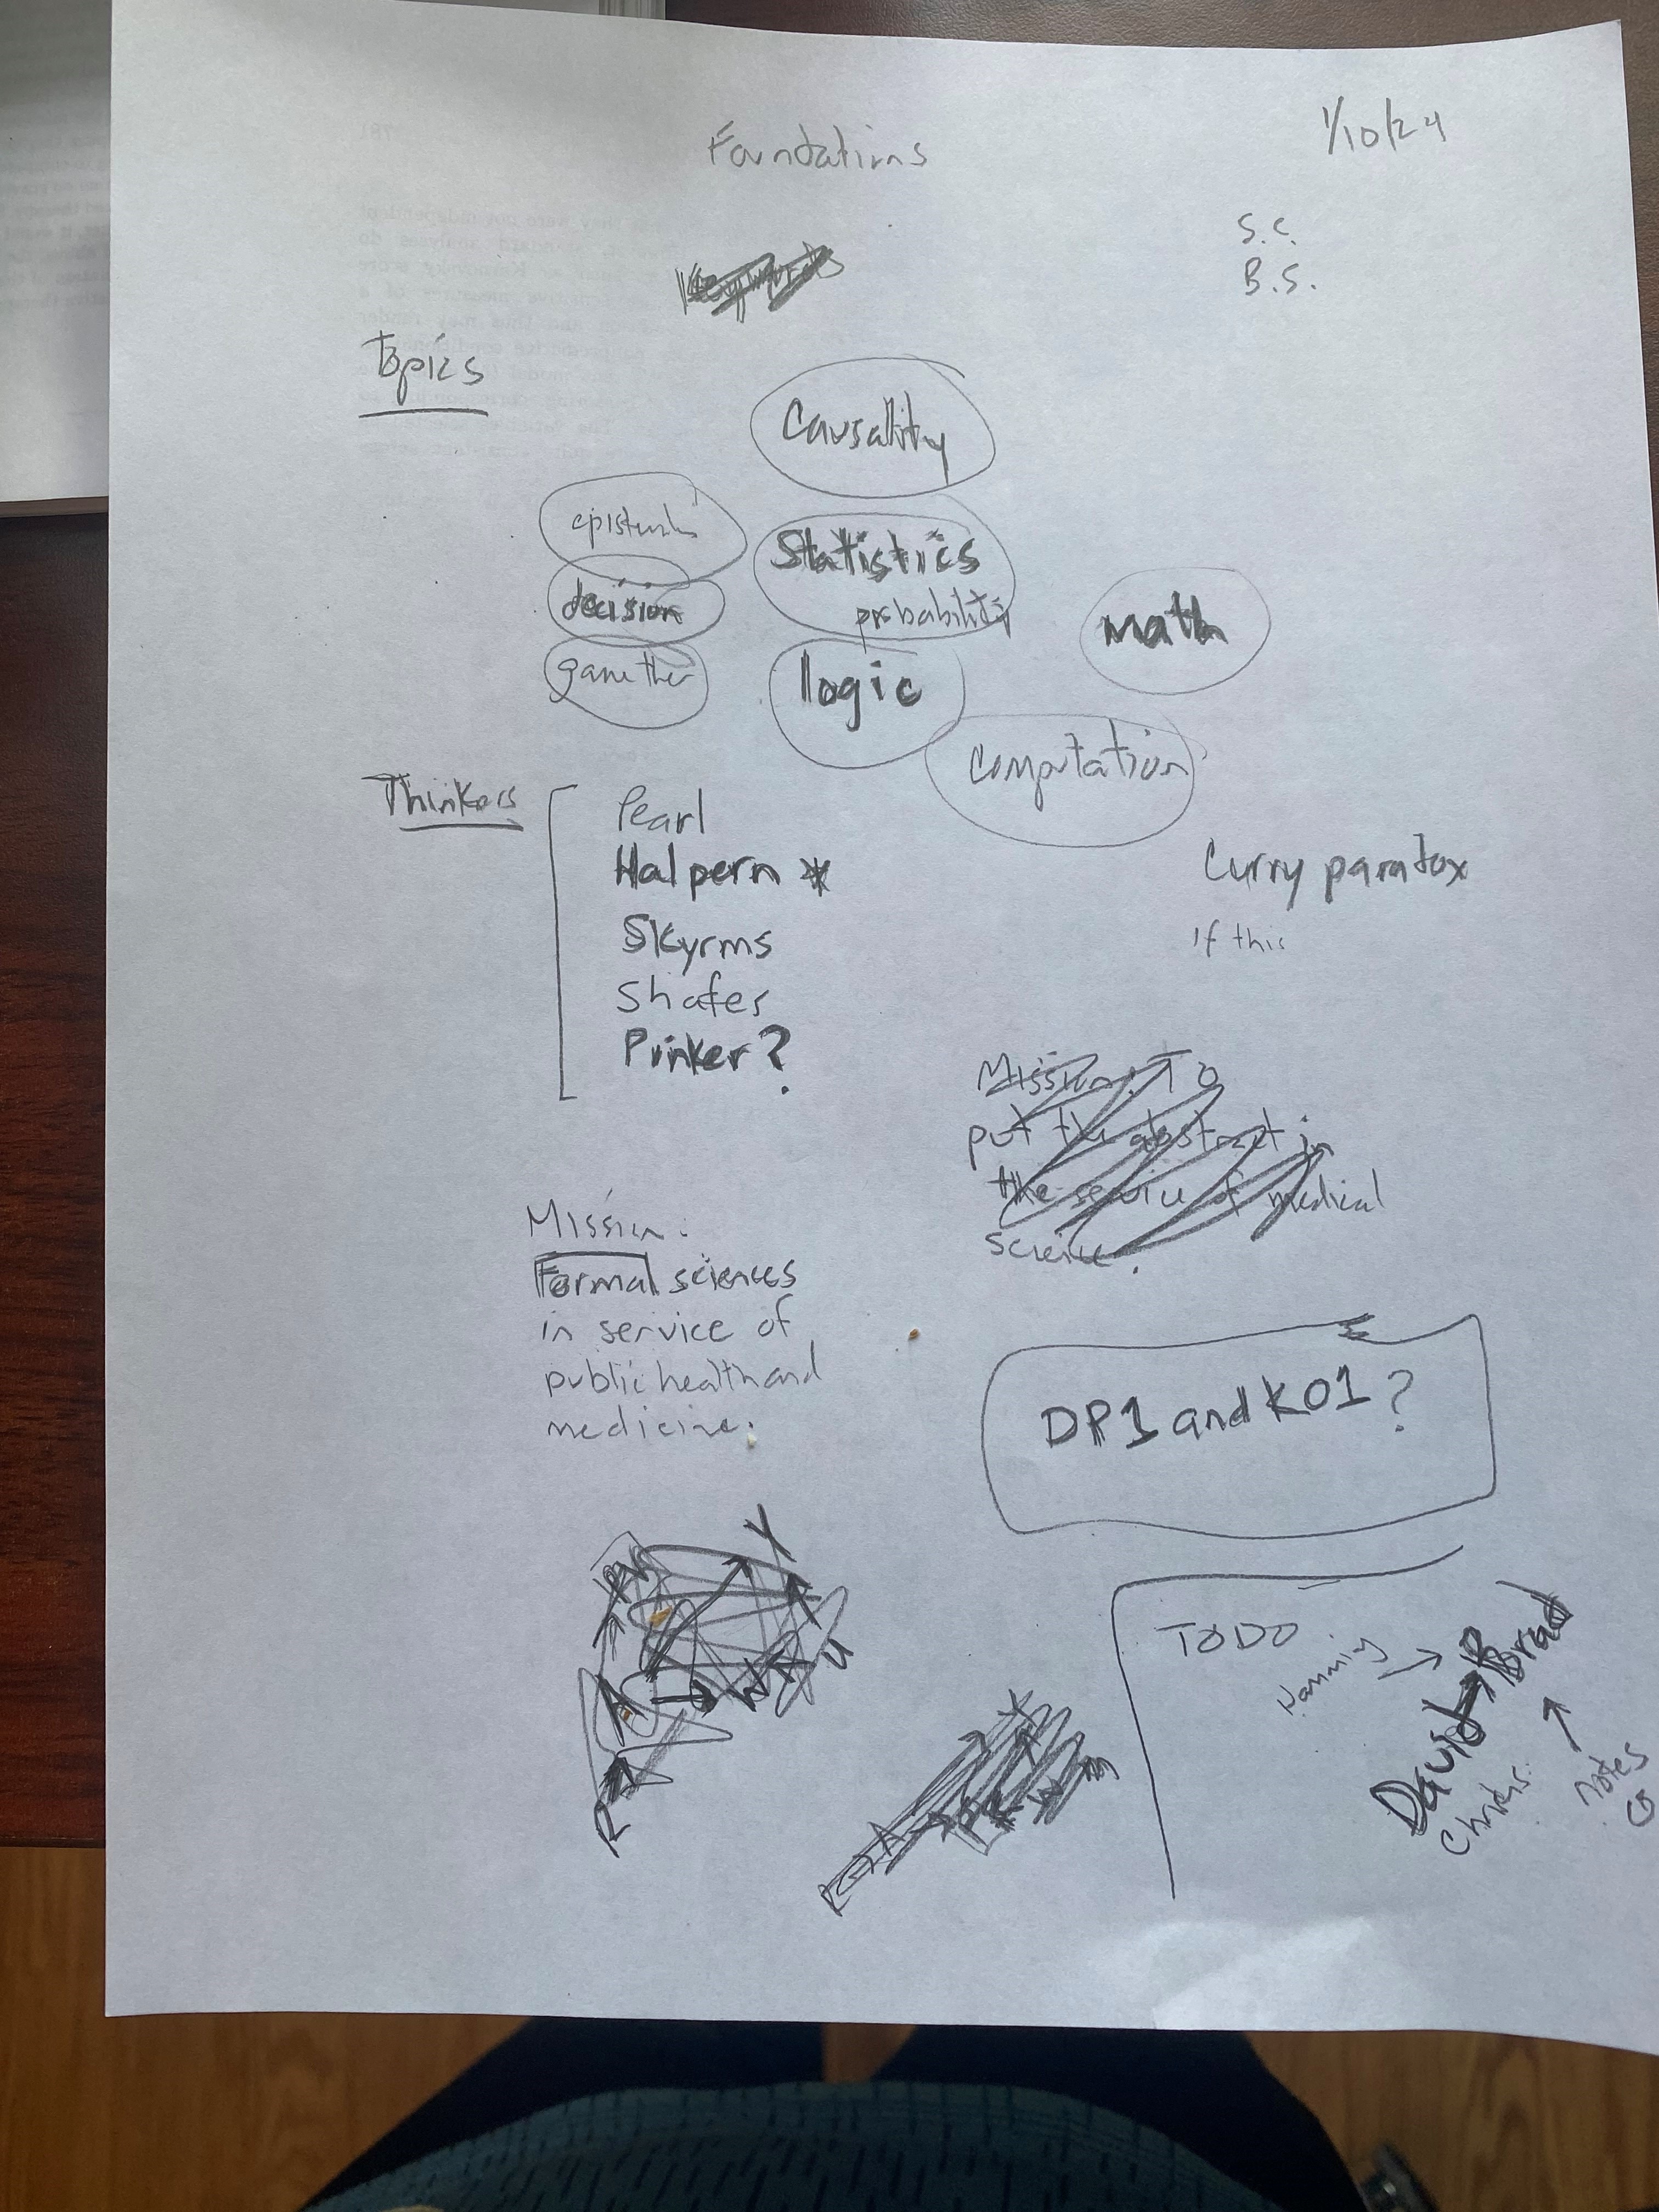 Foundations
1/10/24
S.C.
B.S.
Keywords
Topics
Causality
Statistics
probability
decision
math
game ther
logic
Computation
Thinkers
Pearl
Halpern *
Skyrms
Shafer
Pinker?
Curry paradox
If this
Mission: To
put the abstract in
the service of medical
science.
Mission:
Formal sciences
in service of
public health and
medicine.
DP1 and K01?
Y
U
A → W
R
TODO
David → Brad
notes